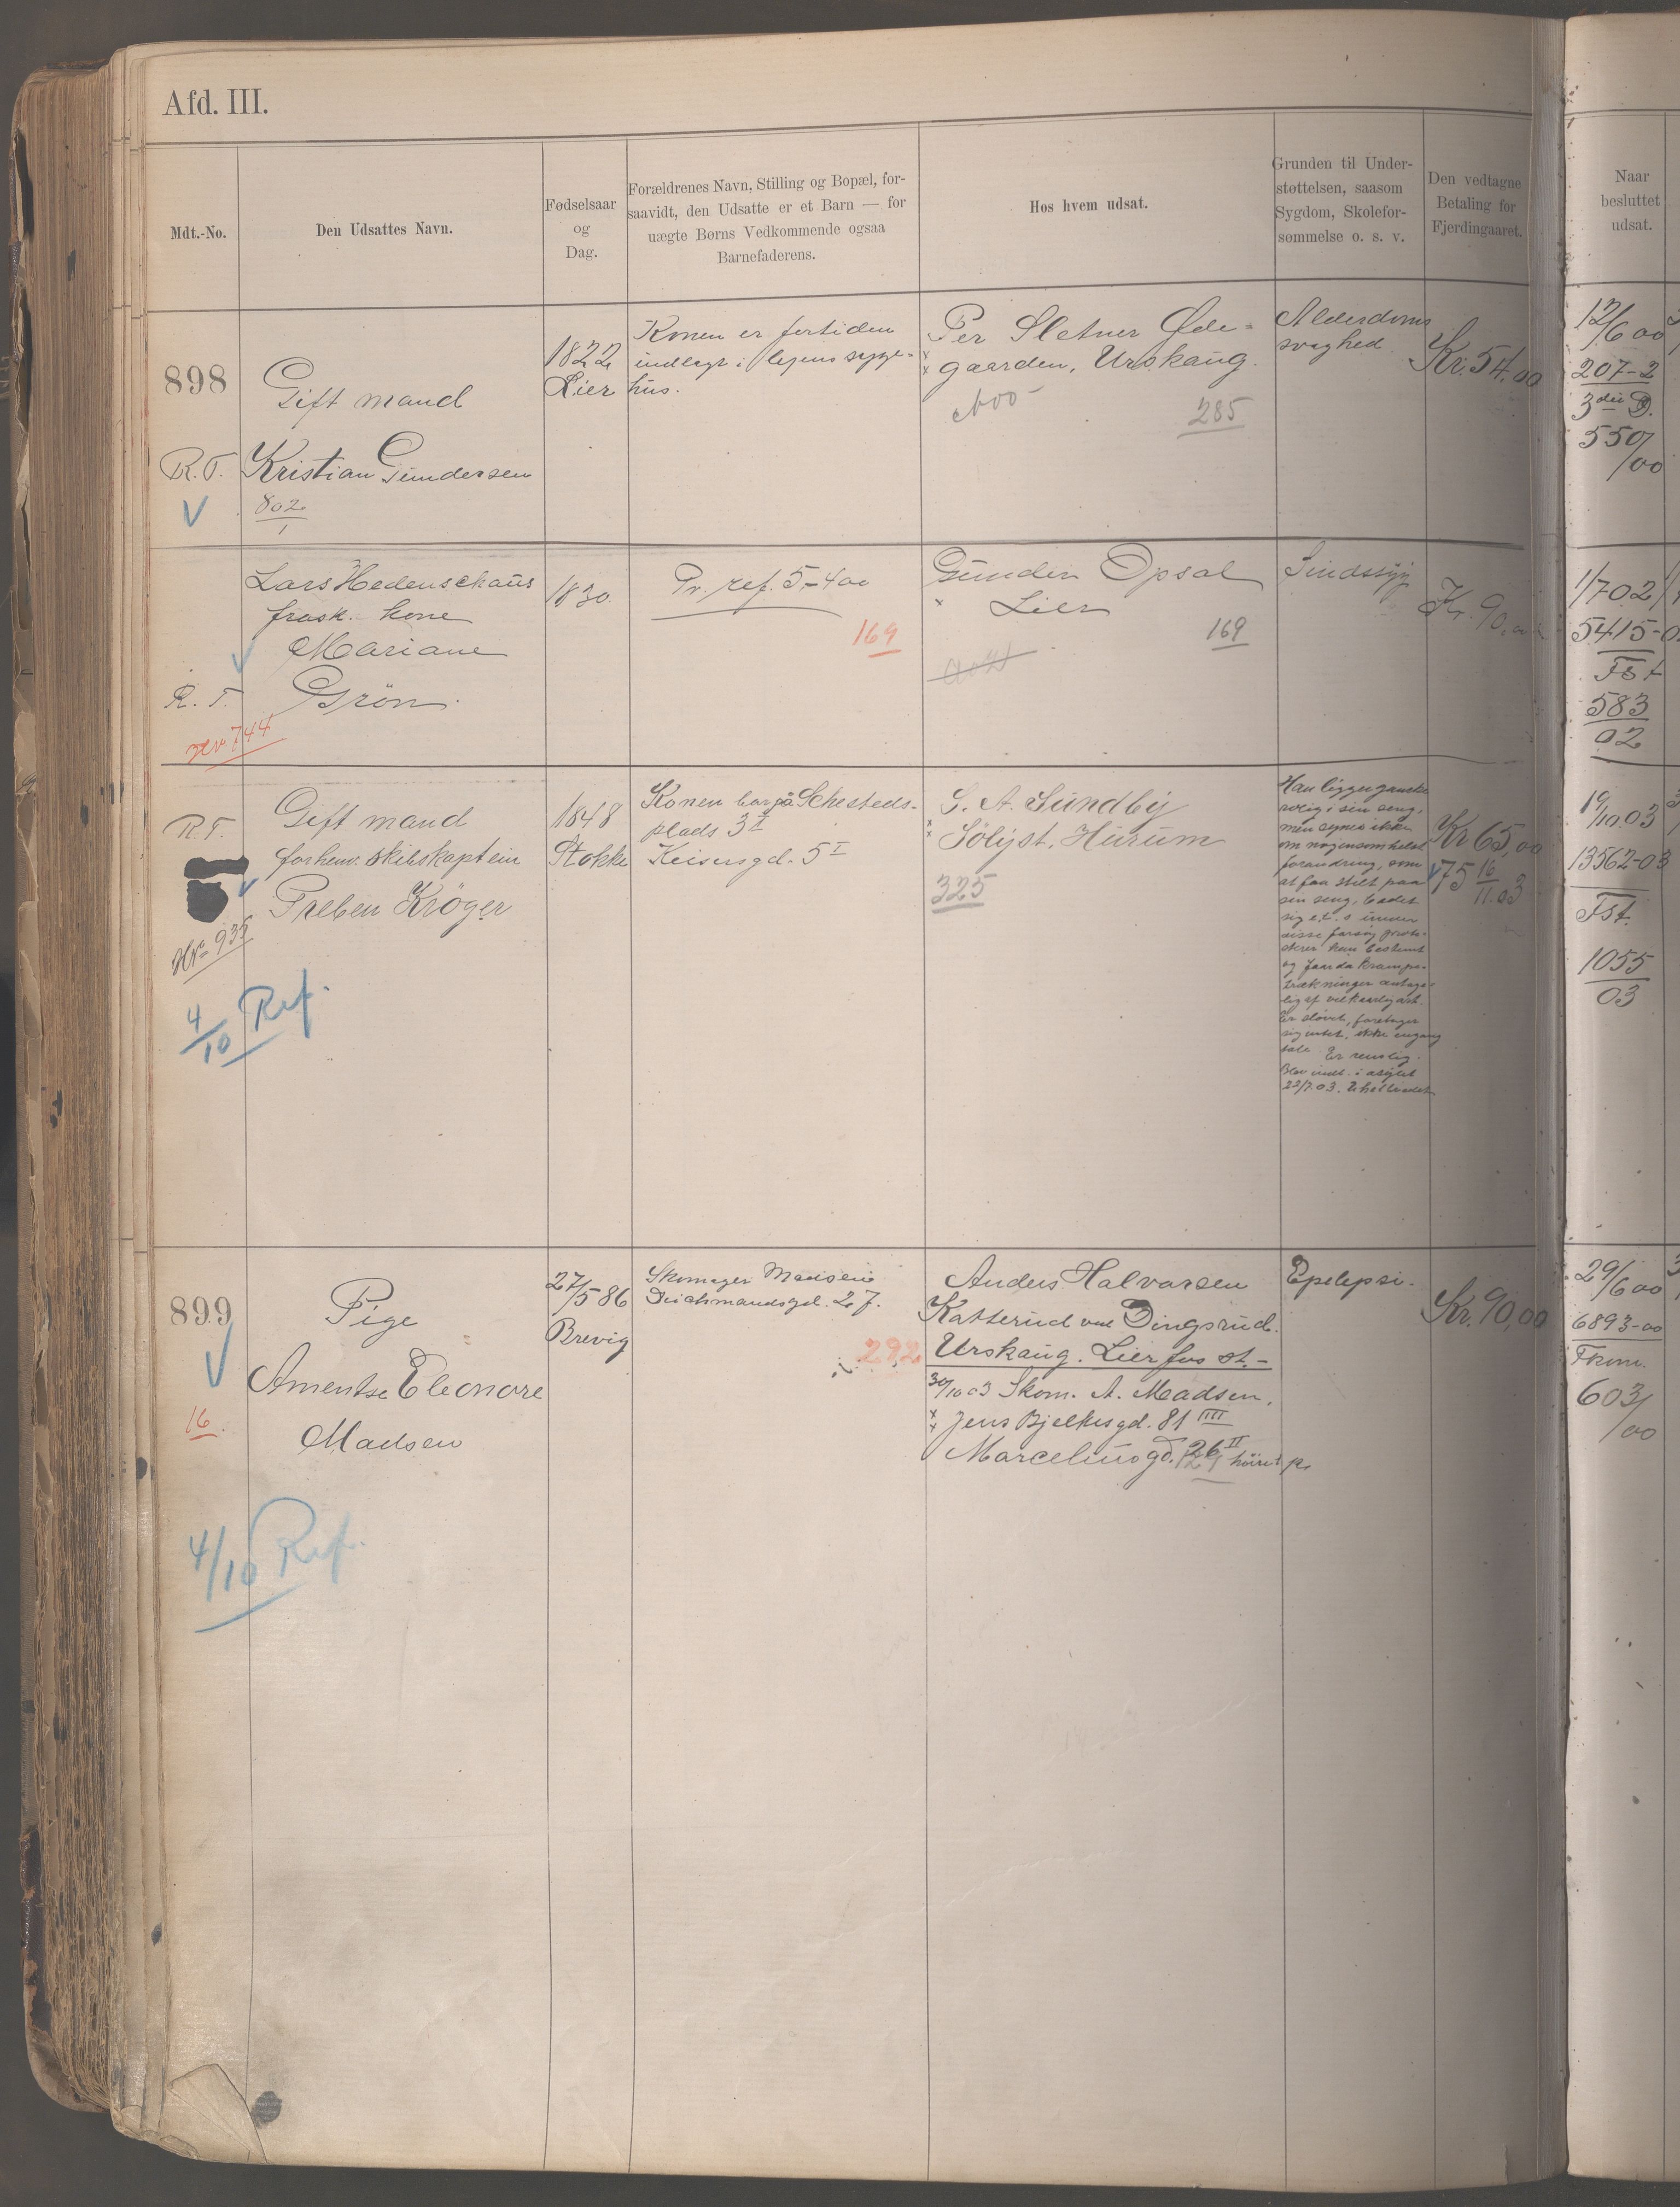 Afd. III.
Mdt.-No.
Den Udsattes Navn.
Fødselsaar
og
Dag.
Forældrenes Navn, Stilling og Bopæl, for-
saavidt, den Udsatte er et Barn — for
uægte Børns Vedkommende ogsaa
Barnefaderens.
Hos hvem udsat.
Grunden til Under-
støttelsen, saasom
Sygdom, Skolefor-
sømmelse o. s. v.
Den vedtagne
Betaling for
Fjerdingaaret.
Naar
besluttet
udsat.
898
R.T.
Gift mand
Kristian Gundersen
802
1
1822
Lier
Konen er fortiden
indlagt i lejens syge-
hus.
Per Sletner Øde-
gaarden, Urskaug.
285
Alderdoms
svaghed
Kr. 54,00
12/6 00
207-2
3die D.
550/00
Lars Hedenschaus
frask. kone
Mariane
Grön.
R. T.
744
1830.
Pr. ref. 5-4 00
169
Gunder Opsal
Lier
169
Sindssyg
Kr. 90,00
1/7 02
5415-0
Fst
583
02
R.T.
Gift mand
forhenv. skibskaptein
Preben Kröger
No 935
4/10 Ref.
1848
Stokke
Konen bor på Schesteds-
plads 3 I
Keisersgd. 5 I
S. A. Sundby
Sölyst, Hurum
325
Han ligger ganske
rolig i sin seng,
men synes ikke
om nogensomhelst
forandring, som
at faa stelt paa
sin seng, badet
sig etc. under
disse
skrer han bestemt
og faar da krampe-
trækninger antage-
lig af vilkaarlig art.
Er sløvet, foretager
sig intet, ikke engang
tale. Er renslig.
Blev indl. i asylet
22/7.03.
Kr 65,00
75 16/11.03
19/10.03
13562-03
Fst.
1055
03
899
16.
Pige
Amentse Eleonore
Madsen
4/10 Ref.
27/5 86
Brevig
Skomager Madsen
Dichmandsgd. 27.
292
Anders Halvorsen
Katterud ved Dingsrud.
Urskaug. Lierfos st.-
30/10 03 Skom. A. Madsen,
Jens Bjelkesgd. 81 IIII
Marcelius gd. 26 II höire
Epelepsi.
Kr. 90,00
29/6 00
6893-00
Fkom.
603/00